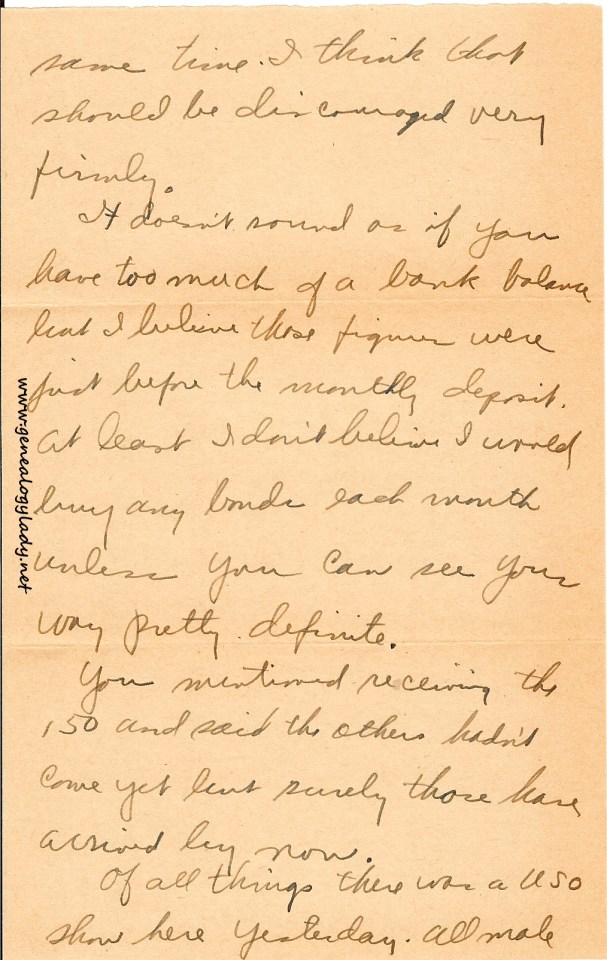 same time. I think that
should be discouraged very
firmly.
It doesn't sound as if you
have too much of a bank balance
but I believe those figures were
just before the monthly deposit.
At least I don't believe I would
buy any bonds each month
unless you can see your
way pretty definite.
You mentioned receiving the
150 and said the others hadn't
come yet but surely those have
arrived by now.
Of all things there was a USO
show here yesterday. All male
www.genealogylady.net